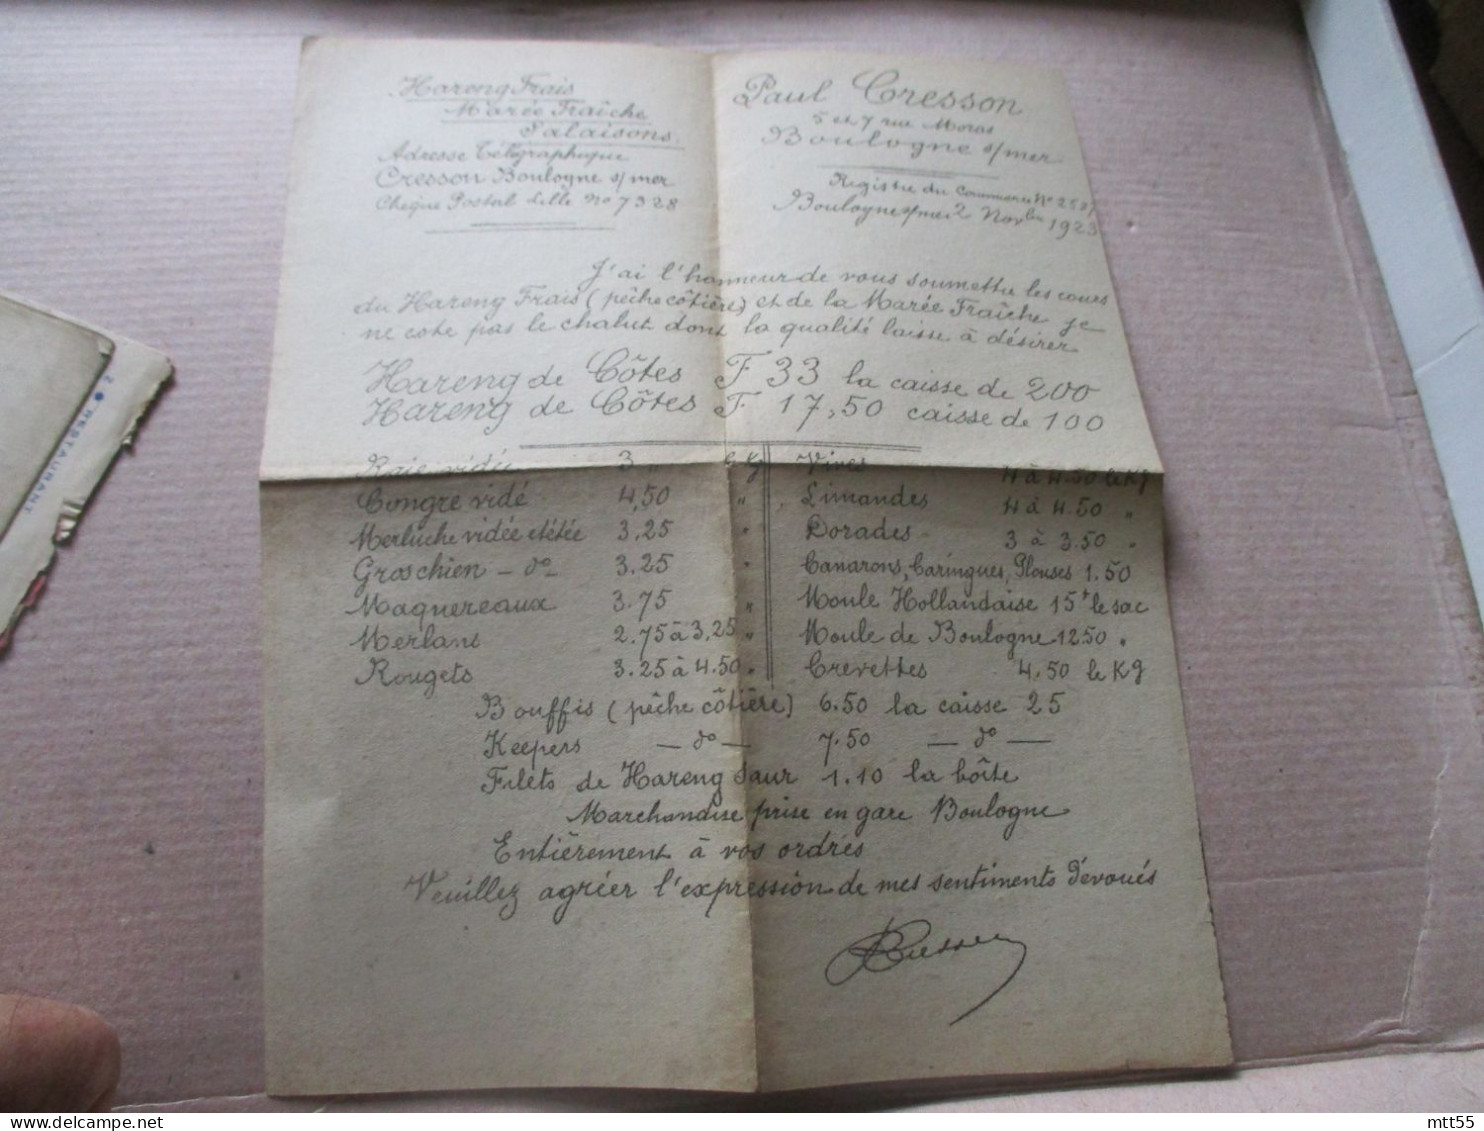 Hareng Frais
Marée Fraîche
Salaisons.
Adresse Télégraphique
Cresson Boulogne s/mer
Chèque Postal Lille No 7328
Paul Cresson
5 et 7 rue Moras
Boulogne s/mer
Registre du Commerce No
Boulogne s/mer 2 Novbre 1923
J'ai l'honneur de vous soumettre les cours
du Hareng Frais (pêche côtière) et de la Marée Fraîche je
ne cote pas le chalut dont la qualité laisse à désirer
Hareng de Côtes F 33 la caisse de 200
Hareng de Côtes F. 17,50 caisse de 100
Raie vidée 3 " le Kg
Congre vidé 4,50 "
Merluche vidée etêtée 3.25 "
Groschien - do - 3.25 "
Maquereaux 3.75 "
Merlans 2.75 à 3,25 "
Rougets 3.25 à 4.50 "
Vives 4 à 4.50 le Kg
Limandes 4 à 4.50 "
Dorades 3 à 3.50 "
Canarons, Caringues, Plouses 1.50
Moule Hollandaise 15f le sac
Moule de Boulogne 12.50 "
Crevettes 4.50 le Kg
Bouffis (pêche côtière) 6.50 la caisse 25
Keepers — do — 7.50 — do —
Filets de Hareng Saur 1.10 la boîte
Marchandise prise en gare Boulogne
Entièrement à vos ordres
Veuillez agréer l'expression de mes sentiments dévoués
Cresson
RESTAURANT
mtt55